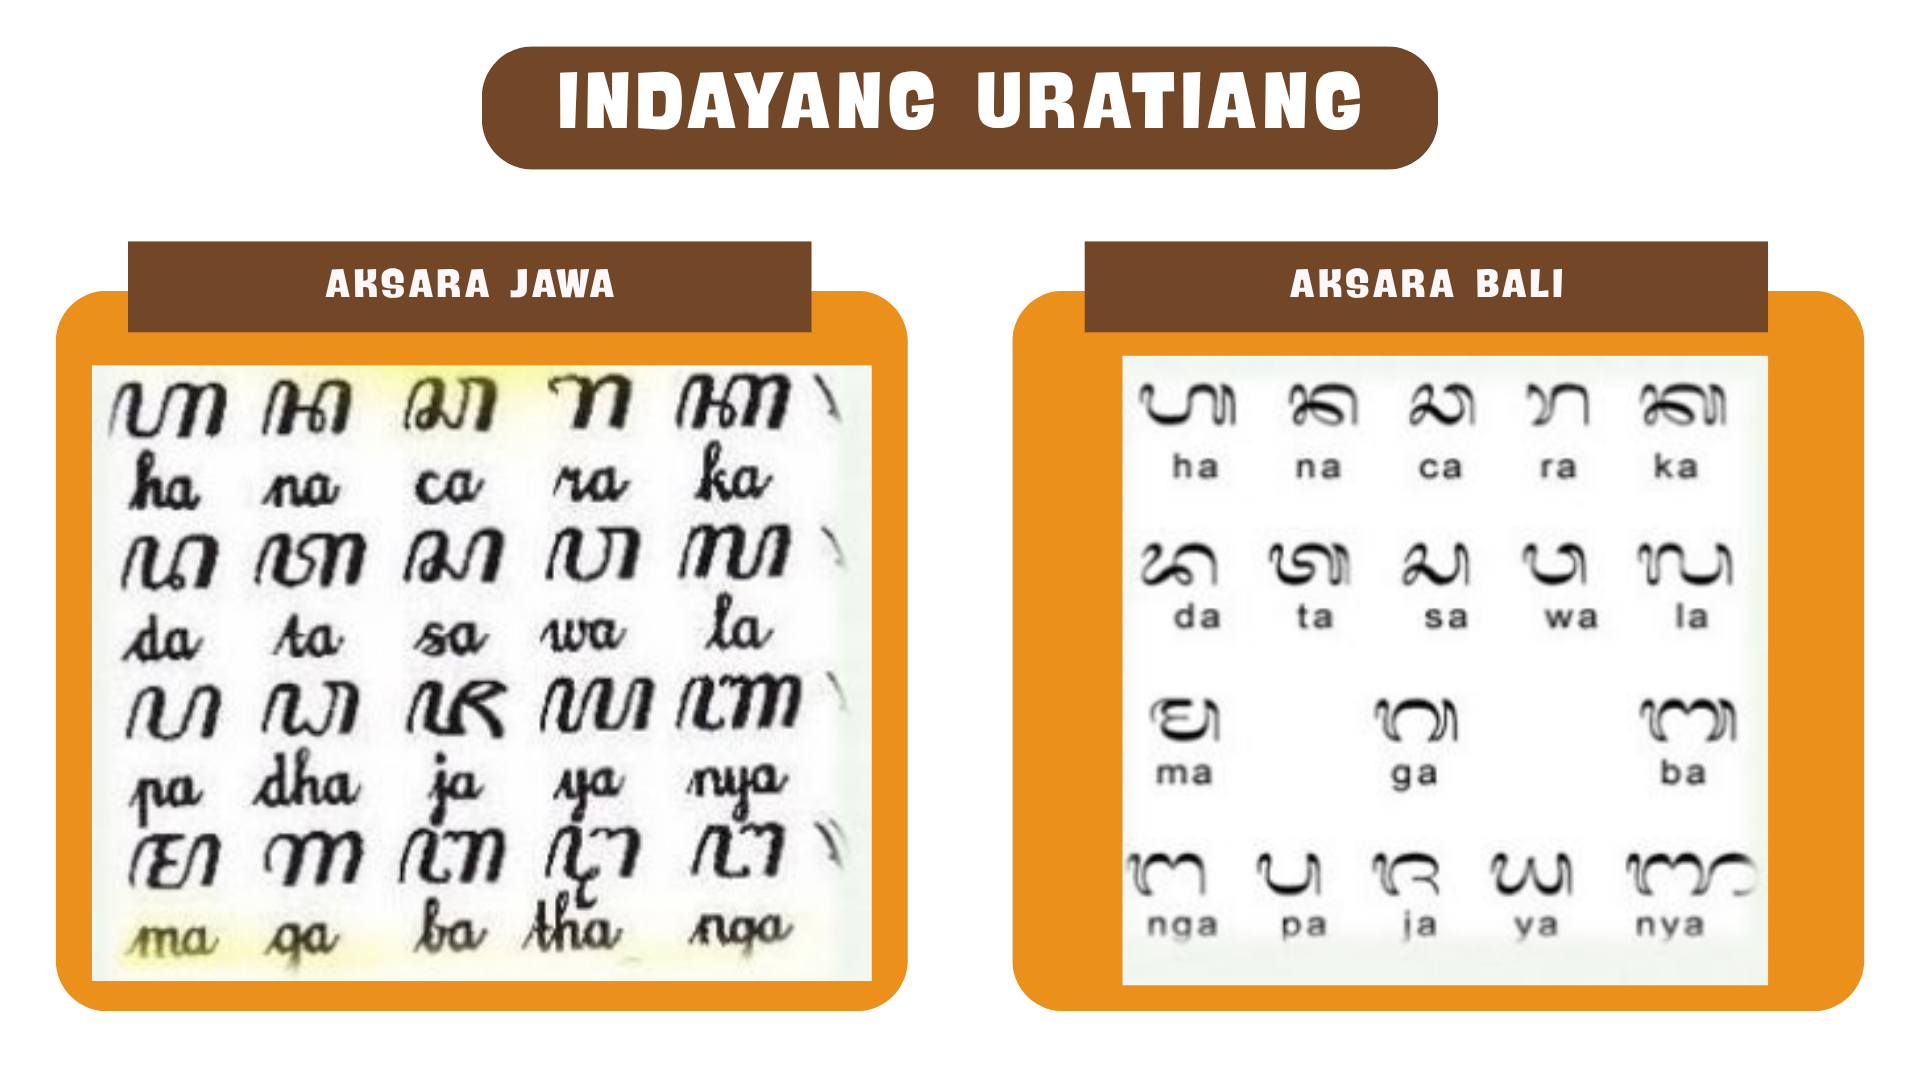 INDAYANG URATIANG
AKSARA JAWA
ꦲ ꦤ ꦕ ꦫ ꦏ
ha na ca ra ka
ꦢ ꦠ ꦱ ꦮ ꦭ
da ta sa wa la
ꦥ ꦝ ꦗ ꦪ ꦚ
pa dha ja ya nya
ꦩ ꦒ ꦧ ꦛ ꦔ
ma ga ba tha nga
AKSARA BALI
ᬳ ᬦ ᬘ ᬭ ᬓ
ha na ca ra ka
ᬤ ᬢ ᬲ ᬯ ᬮ
da ta sa wa la
ᬫ ᬕ ᬩ
ma ga ba
ᬗ ᬧ ᬚ ᬬ ᬜ
nga pa ja ya nya